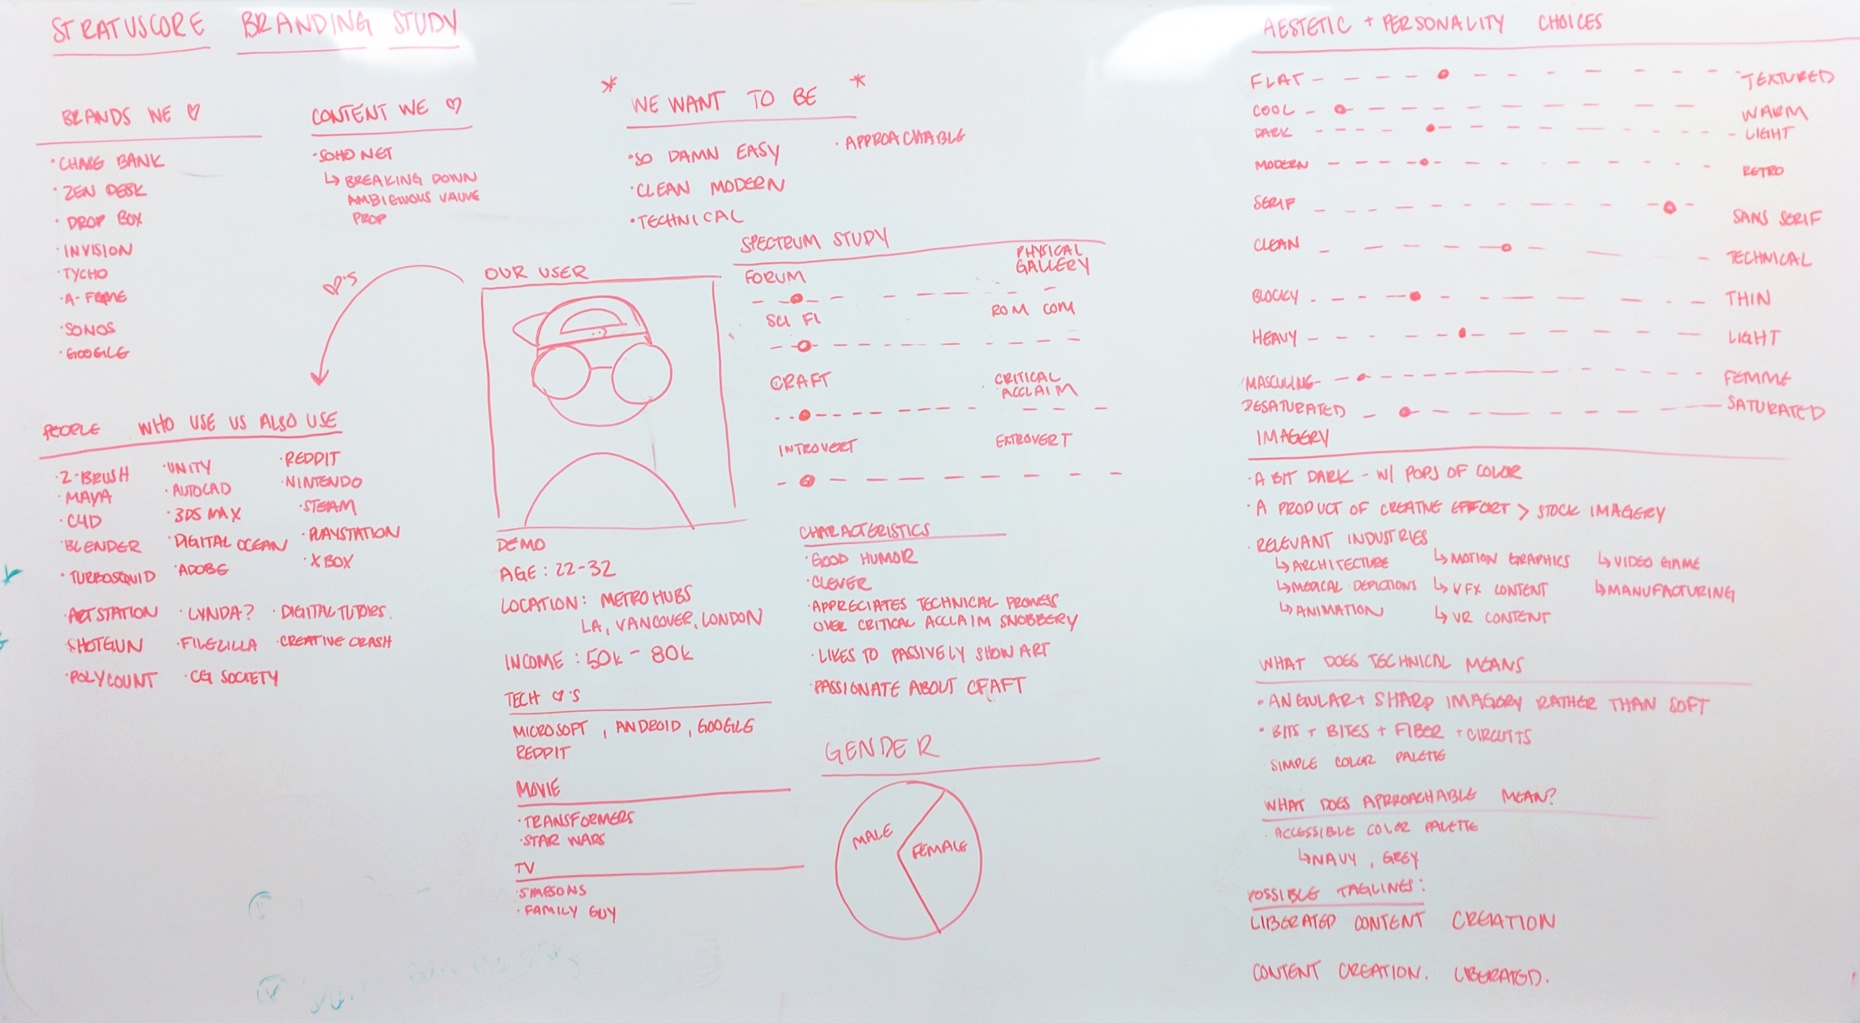 STRATUSCORE BRANDING STUDY
BRANDS WE ♡
· CHASE BANK
· ZEN DESK
· DROP BOX
· INVISION
· TYCHO
· A-FRAME
· SONOS
· GOOGLE
CONTENT WE ♡
· SOHO NET
↳ BREAKING DOWN
AMBIGUOUS VALUE
PROP
* WE WANT TO BE *
· SO DAMN EASY
· CLEAN MODERN
· TECHNICAL
· APPROACHABLE
♡'S
PEOPLE WHO USE US ALSO USE
· Z-BRUSH
· MAYA
· C4D
· BLENDER
· TURBOSQUID
· ARTSTATION
SHOTGUN
· POLYCOUNT
· UNITY
· AUTOCAD
· 3DS MAX
· DIGITAL OCEAN
· ADOBE
· LYNDA?
· FILEZILLA
· CG SOCIETY
· REDDIT
· NINTENDO
· STEAM
· PLAYSTATION
· XBOX
· DIGITAL TUTORS.
· CREATIVE CRASH
OUR USER
DEMO
AGE: 22-32
LOCATION: METRO HUBS
LA, VANCOVER, LONDON
INCOME: 50K - 80K
TECH ♡'S
MICROSOFT, ANDROID, GOOGLE
REDDIT
MOVIE
· TRANSFORMERS
· STAR WARS
TV
· SIMPSONS
· FAMILY GUY
SPECTRUM STUDY
FORUM PHYSICAL
GALLERY
SCI FI ROM COM
CRAFT CRITICAL
ACCLAIM
INTROVERT EXTROVERT
CHARACTERISTICS
· GOOD HUMOR
· CLEVER
· APPRECIATES TECHNICAL PROWESS
OVER CRITICAL ACCLAIM SNOBBERY
· LIKES TO PASSIVELY SHOW ART
· PASSIONATE ABOUT CRAFT
GENDER
MALE
FEMALE
AESTETIC + PERSONALITY CHOICES
FLAT TEXTURED
COOL WARM
DARK LIGHT
MODERN RETRO
SERIF SANS SERIF
CLEAN TECHNICAL
BLOCKY THIN
HEAVY LIGHT
MASCULINE FEMME
DESATURATED SATURATED
IMAGERY
· A BIT DARK - W/ POPS OF COLOR
· A PRODUCT OF CREATIVE EFFORT > STOCK IMAGERY
· RELEVANT INDUSTRIES
↳ ARCHITECTURE ↳ MOTION GRAPHICS ↳ VIDEO GAME
↳ MEDICAL DEPICTIONS ↳ VFX CONTENT ↳ MANUFACTURING
↳ ANIMATION ↳ VR CONTENT
WHAT DOES TECHNICAL MEANS
· ANGULAR + SHARP IMAGERY RATHER THAN SOFT
· BITS + BITES + FIBER + CIRCUITS
SIMPLE COLOR PALETTE
WHAT DOES APPROACHABLE MEAN?
· ACCESSIBLE COLOR PALETTE
↳ NAVY, GREY
POSSIBLE TAGLINES:
LIBERATED CONTENT CREATION
CONTENT CREATION. LIBERATED.